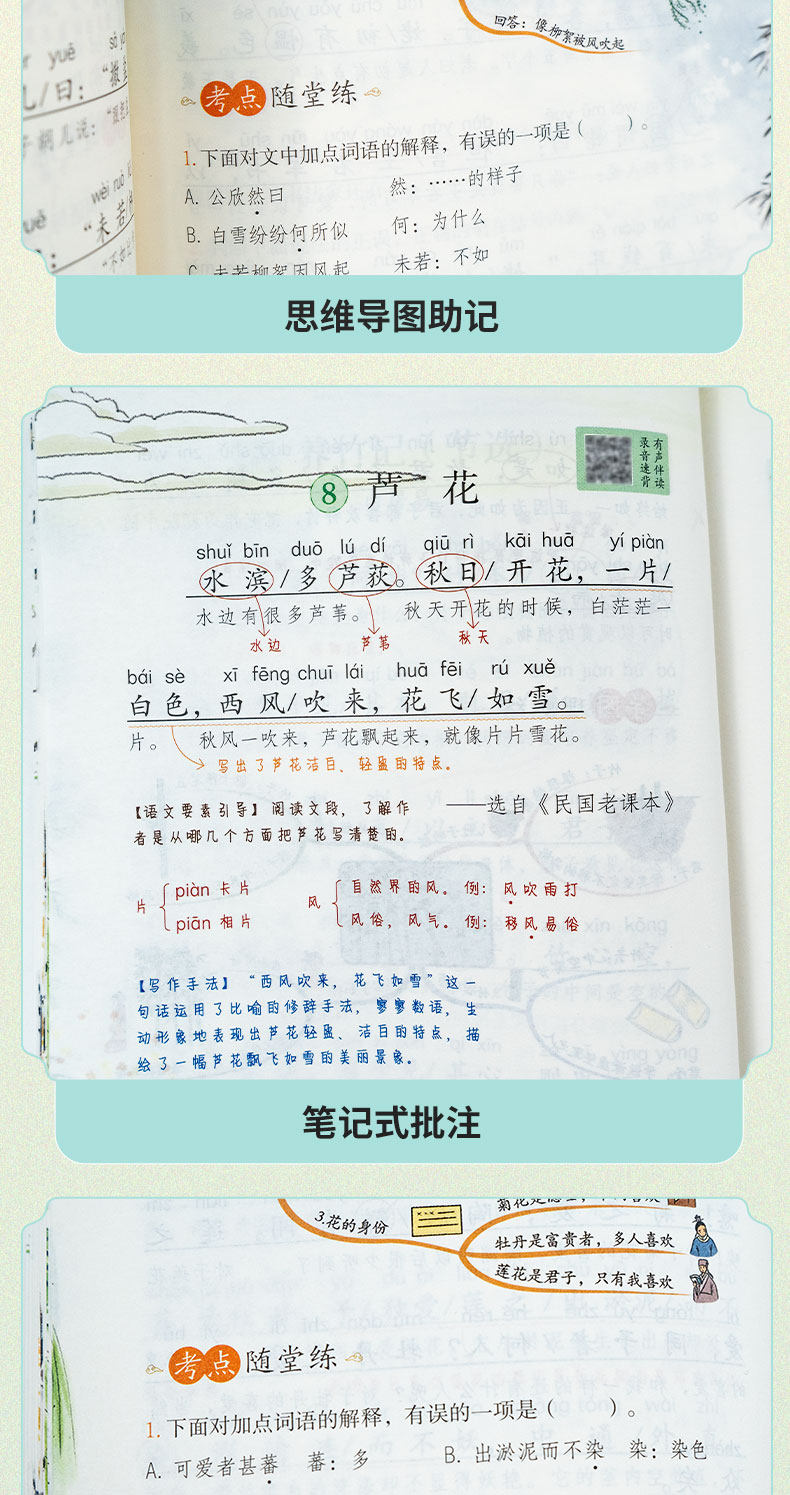 回答：像柳絮被风吹起
考点 随堂练
1.下面对文中加点词语的解释，有误的一项是（　　）。
A. 公欣然曰　然：……的样子
B. 白雪纷纷何所似　何：为什么
C. 未若柳絮因风起　未若：不如
思维导图助记
有声伴读
录音速背
8 芦 花
shuǐ bīn duō lú dí qiū rì kāi huā yí piàn
水 滨/多 芦荻。秋日/开 花，一片/
水边有很多芦苇。 秋天开花的时候，白茫茫一
水边 芦苇 秋天
bái sè xī fēng chuī lái huā fēi rú xuě
白色，西 风/吹 来，花 飞/如 雪。
片。 秋风一吹来，芦花飘起来，就像片片雪花。
写出了芦花洁白、轻盈的特点。
——选自《民国老课本》
【语文要素引导】阅读文段，了解作
者是从哪几个方面把芦花写清楚的。
片 piàn 卡片
piān 相片
风 自然界的风。例：风吹雨打
风俗，风气。例：移风易俗
【写作手法】“西风吹来，花飞如雪”这一
句话运用了比喻的修辞手法，寥寥数语，生
动形象地表现出芦花轻盈、洁白的特点，描
绘了一幅芦花飘飞如雪的美丽景象。
笔记式批注
3.花的身份
牡丹是富贵者，多人喜欢
莲花是君子，只有我喜欢
考点 随堂练
1.下面对加点词语的解释，有误的一项是（　　）。
A. 可爱者甚蕃　蕃：多 B. 出淤泥而不染　染：染色